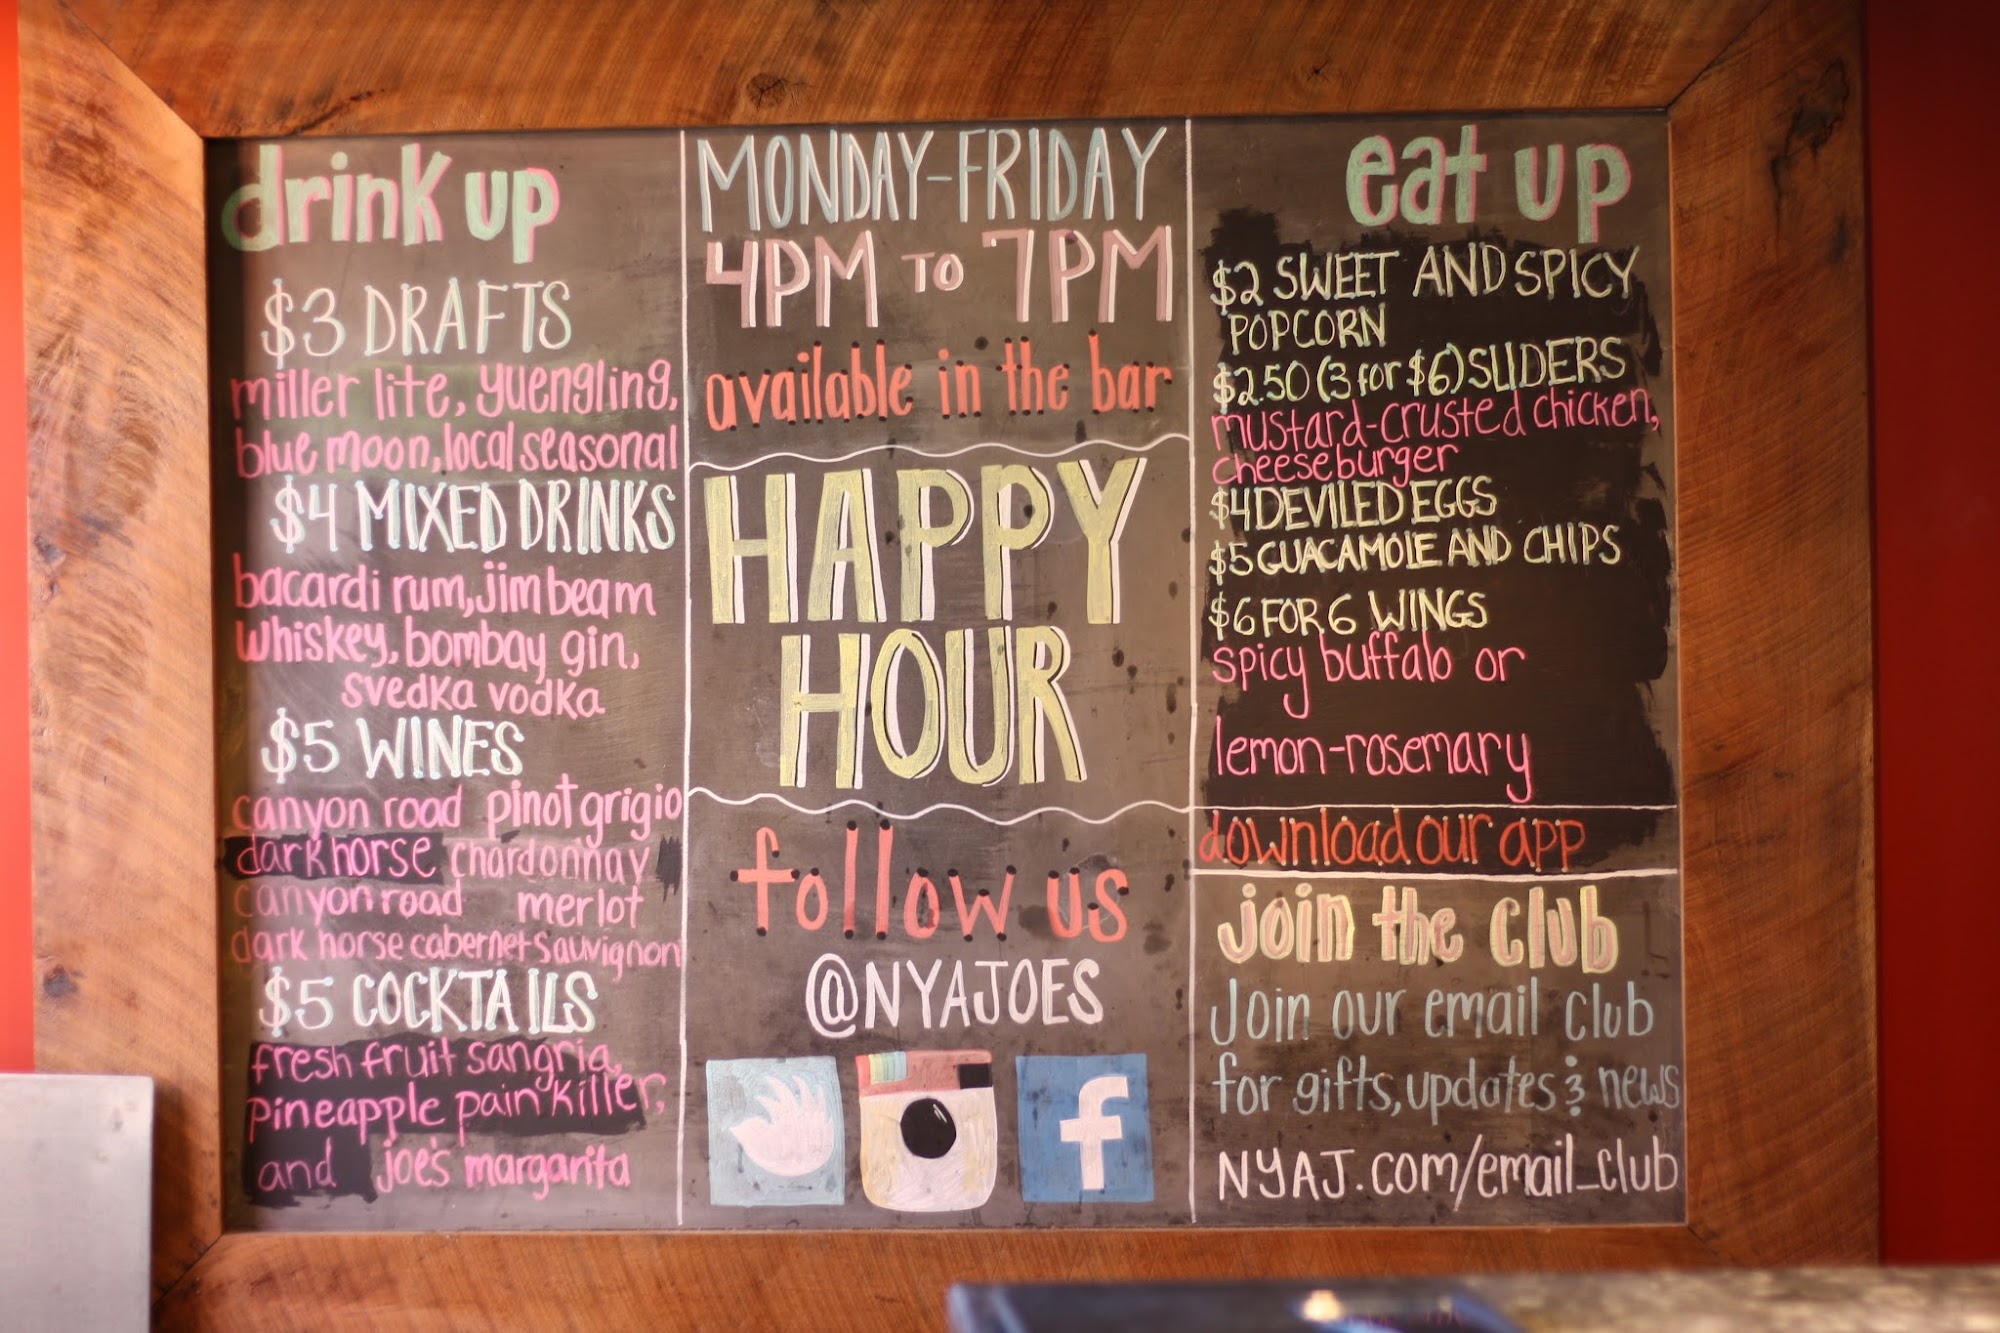 drink up
$3 DRAFTS
miller lite, yuengling,
blue moon, local seasonal
$4 MIXED DRINKS
bacardi rum, jim beam
whiskey, bombay gin,
svedka vodka
$5 WINES
canyon road pinot grigio
dark horse chardonnay
canyon road merlot
dark horse cabernet sauvignon
$5 COCKTAILS
fresh fruit sangria,
pineapple painkiller,
and joe's margarita
MONDAY-FRIDAY
4PM TO 7PM
available in the bar
HAPPY
HOUR
follow us
@NYAJOES
f
eat up
$2 SWEET AND SPICY
POPCORN
$2.50 (3 for $6) SLIDERS
mustard-crusted chicken,
cheeseburger
$4 DEVILED EGGS
$5 GUACAMOLE AND CHIPS
$6 FOR 6 WINGS
spicy buffalo or
lemon-rosemary
download our app
join the club
Join our email club
for gifts, updates & news
NYAJ.com/email_club